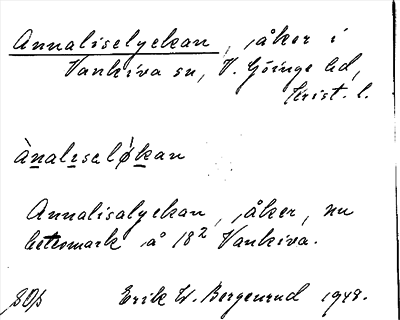 Annaliselyckan, åker i
Vankiva sn, V. Göinge hd,
Krist. l.
ànaliseløkan
Annalisalyckan, åker, nu
betesmark å 18² Vankiva.
Erik W. Bergenrud 1948.